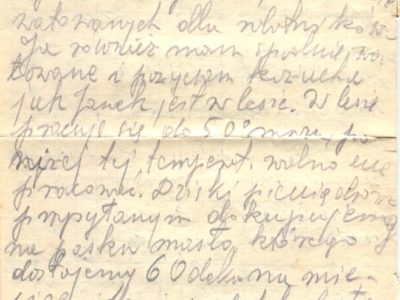 watowanych dla robotników
Ja również mam spodnie wa
towane i pożyczam kożucha
jak Janek jest w lesie. W lesie
pracuje się do 50° mrozu, po
niżej tej temperat. wolno nie
pracować. Dzięki pieniędzom
przysłanym dokupujemy
na pasku masła, którego
dostajemy 60 deka na mie-